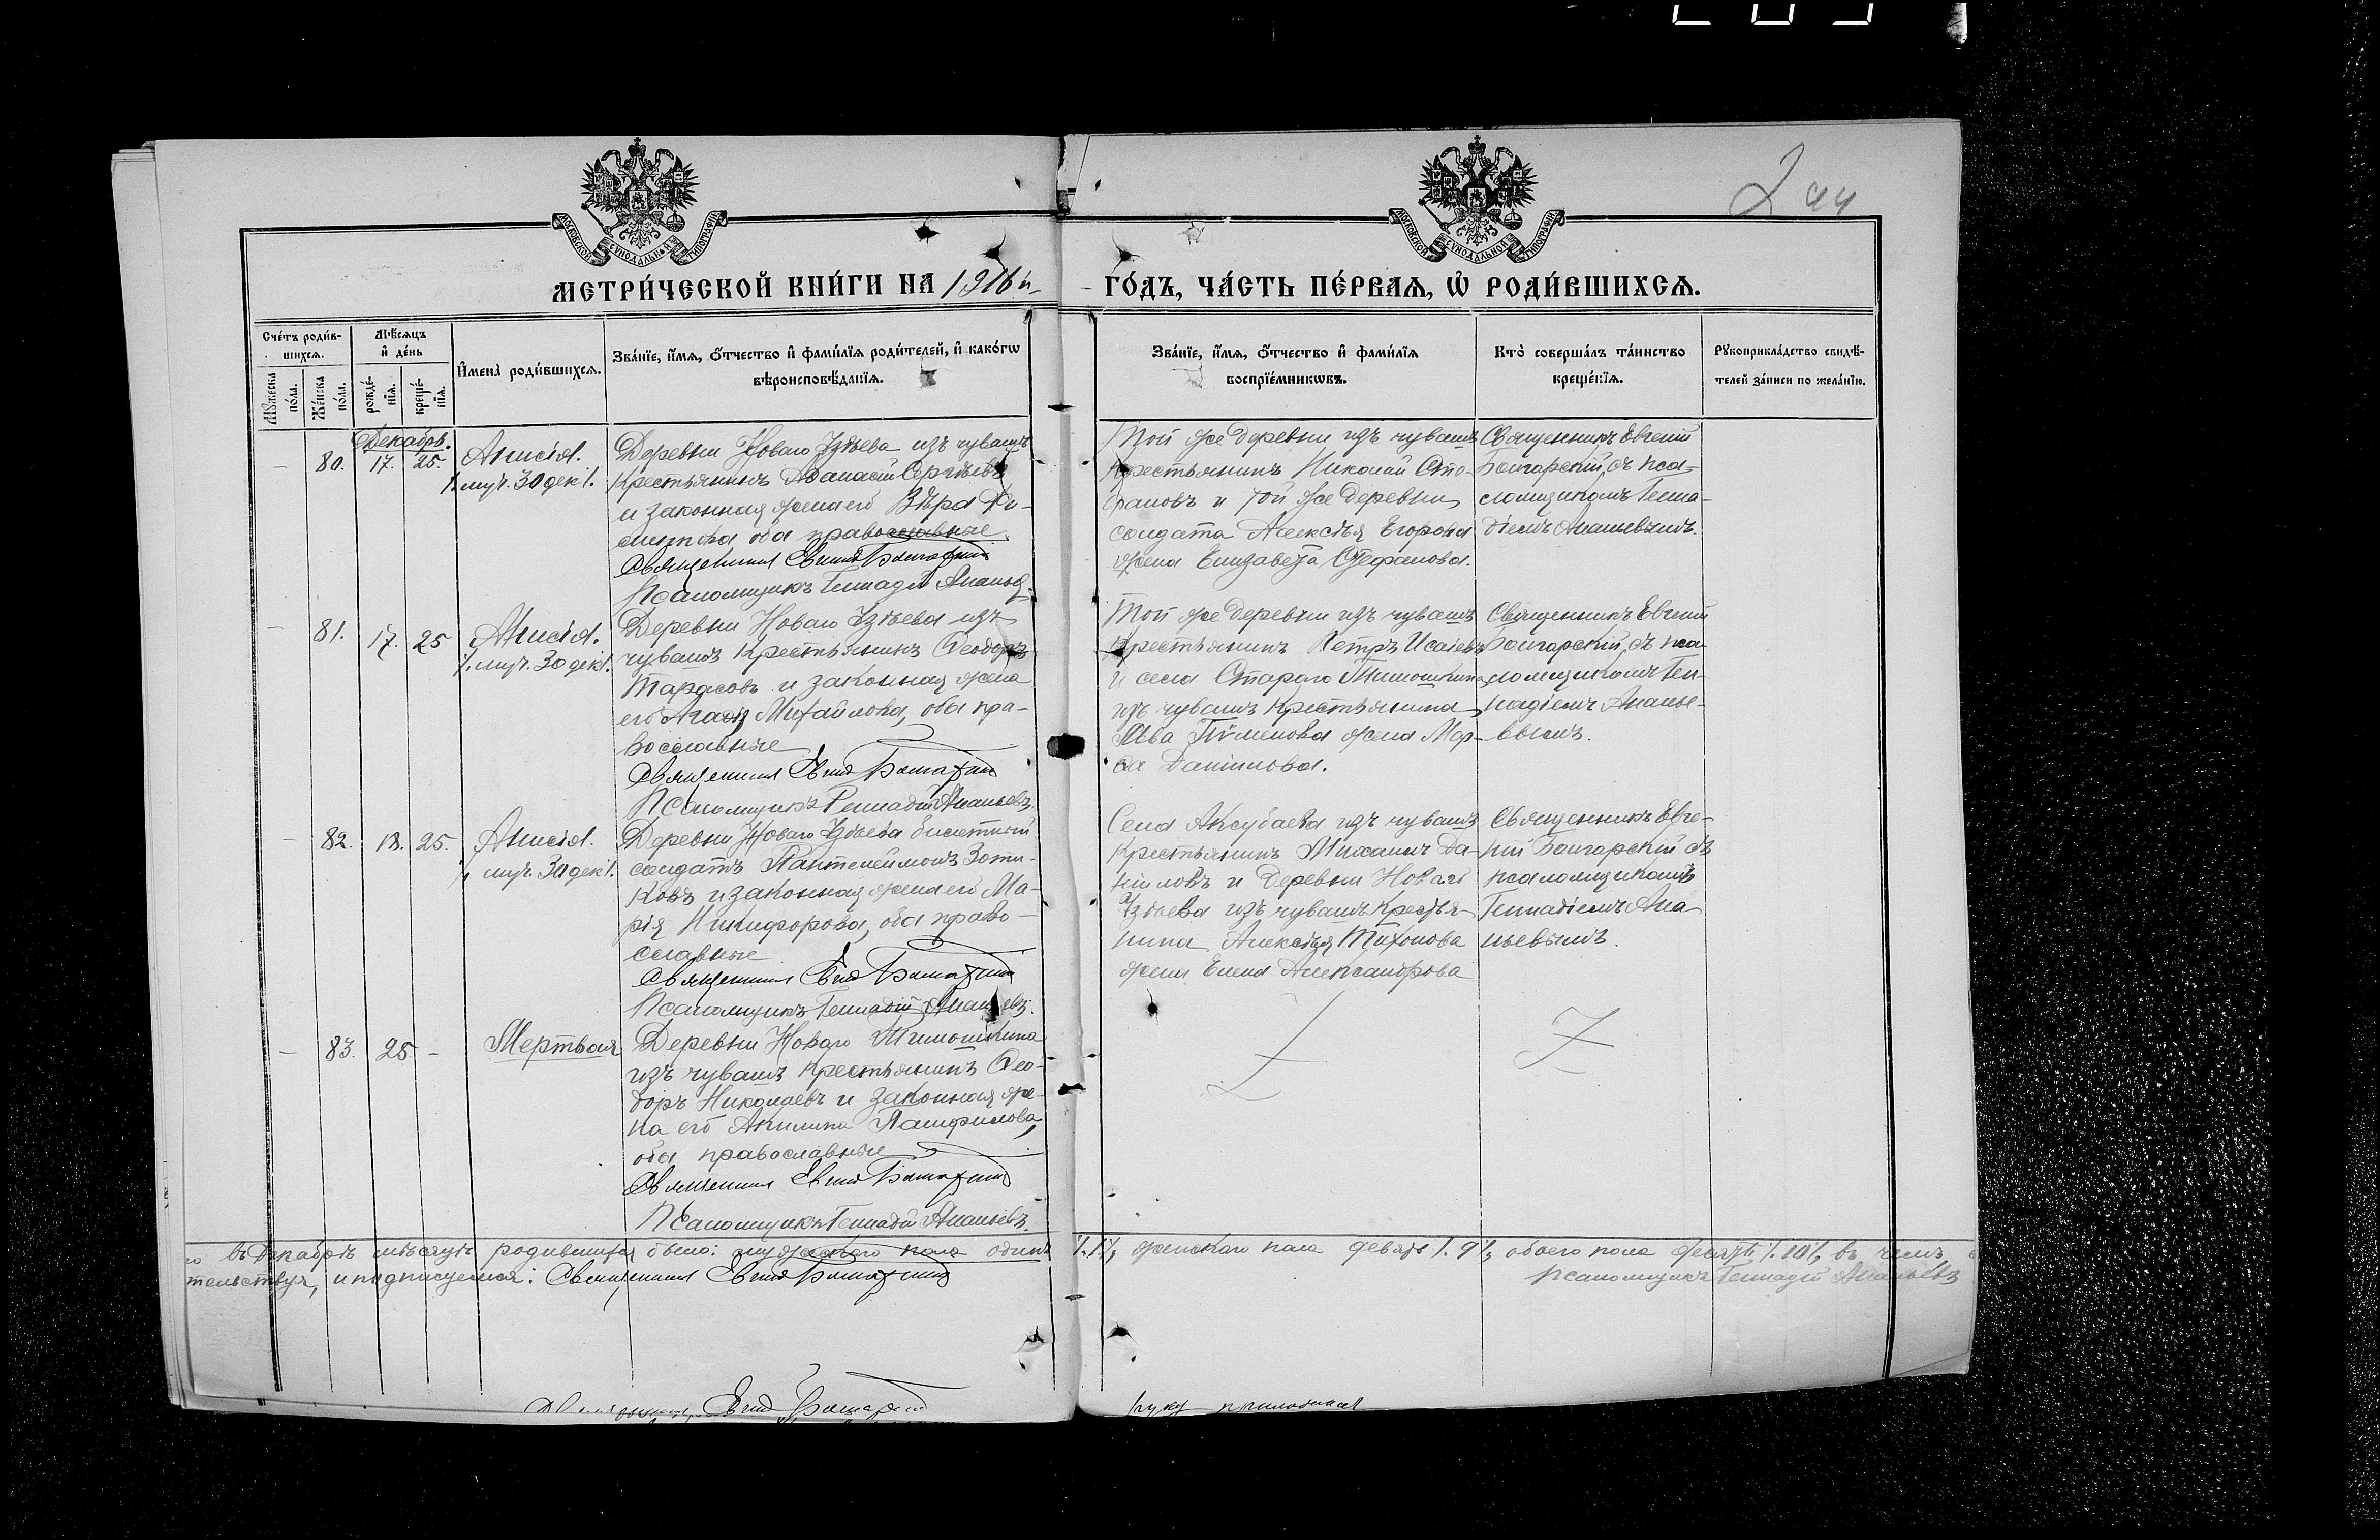 244
МЕТРИ́ЧЕСКОЙ КНИ́ГИ НА 1916й
ГО́ДЪ, ЧА́СТЬ ПЕ́РВАѦ, Ѡ҆ РОДИ́ВШИХСѦ.
Сче́тъ роди́в-
шихсѧ.
Мѹжеска по́ла.
Же́нска по́ла.
Мѣ́сѧцъ и҆ де́нь
рожде́-
нїѧ.
креще́-
нїѧ.
И҆мена̀ роди́вшихсѧ.
Зва́нїе, и҆́мѧ, ѻ҆́тчество и҆ фами́лїѧ роди́телей, и҆ како́гѡ
вѣроисповѣ́данїѧ.
Зва́нїе, и҆́мѧ, ѻ҆́тчество и҆ фами́лїѧ
воспрїе́мникѡвъ.
Кто̀ соверша́лъ та́инство
креще́нїѧ.
Рꙋкоприкла́дство свидѣ́-
телей за́писи по жела́нїю.
Декабрь.
— 80. 17. 25.
Анисія.
муч. 30 дек.
Деревни Новаго Узѣева изъ чувашъ
Крестьянинъ Аѳанасій Сергѣевъ
и законная жена его Вѣра Фи-
оба православные
Священникъ Евгеній Болгарскій
Псаломщикъ Геннадій Ананьевъ
Той же деревни изъ чувашъ
крестьянинъ Николай Сте-
фановъ и той же деревни
солдата Алексѣя Егорова
жена Елизавета Стефанова.
Священникъ Евгеній
Болгарскій съ пса-
ломщикомъ Генна-
діемъ Ананьевымъ.
— 81. 17. 25
Анисія.
муч. 30 дек.
Деревни Новаго Узѣева изъ
чувашъ Крестьянинъ Ѳеодоръ
Тарасовъ и законная жена
его Михайлова, оба пра-
вославные
Священникъ Евгеній Болгарскій
Псаломщикъ Геннадій Ананьевъ.
Той же деревни изъ чувашъ
Крестьянинъ Петръ Исаевъ
и села Стараго Тимошкина
изъ чувашъ Крестьянина
Пименова жена Мар-
ѳа Данилова.
Священникъ Евгеній
Болгарскій съ пса-
ломщикомъ Ген-
надіемъ Ананье-
вымъ.
— 82. 18. 25.
Анисія.
муч. 30 дек.
Деревни Новаго Узѣева билетный
солдатъ Пантелеймонъ Зоти-
ковъ и законная жена его Ма-
рія Никифорова, оба право-
славные
Священникъ Евгеній Болгарскій
Псаломщикъ Геннадій Ананьевъ.
Села Аксубаева изъ чувашъ
Крестьянинъ Михаилъ Да-
ниловъ и деревни Новаго
Узѣева изъ чувашъ Крестья-
нина Алексѣя Тихонова
жена Елена Александрова
Священникъ Евге-
ній Болгарскій съ
псаломщикомъ
Геннадіемъ Ана-
ньевымъ.
— 83. 25 —
Мертвая
Деревни Новаго Тимошкина
изъ чувашъ Крестьянинъ Ѳео-
доръ Николаевъ и законная же-
на его Акилина Памфилова,
оба православные
Священникъ Евгеній Болгарскій
Псаломщикъ Геннадій Ананьевъ.
въ Декабрѣ мѣсяцѣ родившихся было: мужскаго пола одинъ /.1/., женскаго пола девять /.9/., обоего пола десять /.10/., въ чемъ
тельствуя, и подписуемся: Священникъ Евгеній Болгарскій
Псаломщикъ Геннадій Ананьевъ
Евгеній Болгарскій
руку приложилъ